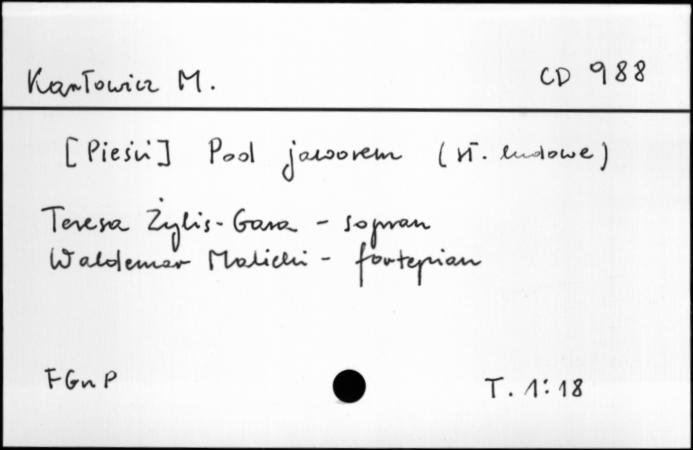 Karłowicz M.
CD 988
[Pieśni] Pod jaworem (sł. ludowe)
Teresa Żylis-Gara - sopran
Waldemar Malicki - fortepian
FGnP
T. 1:18